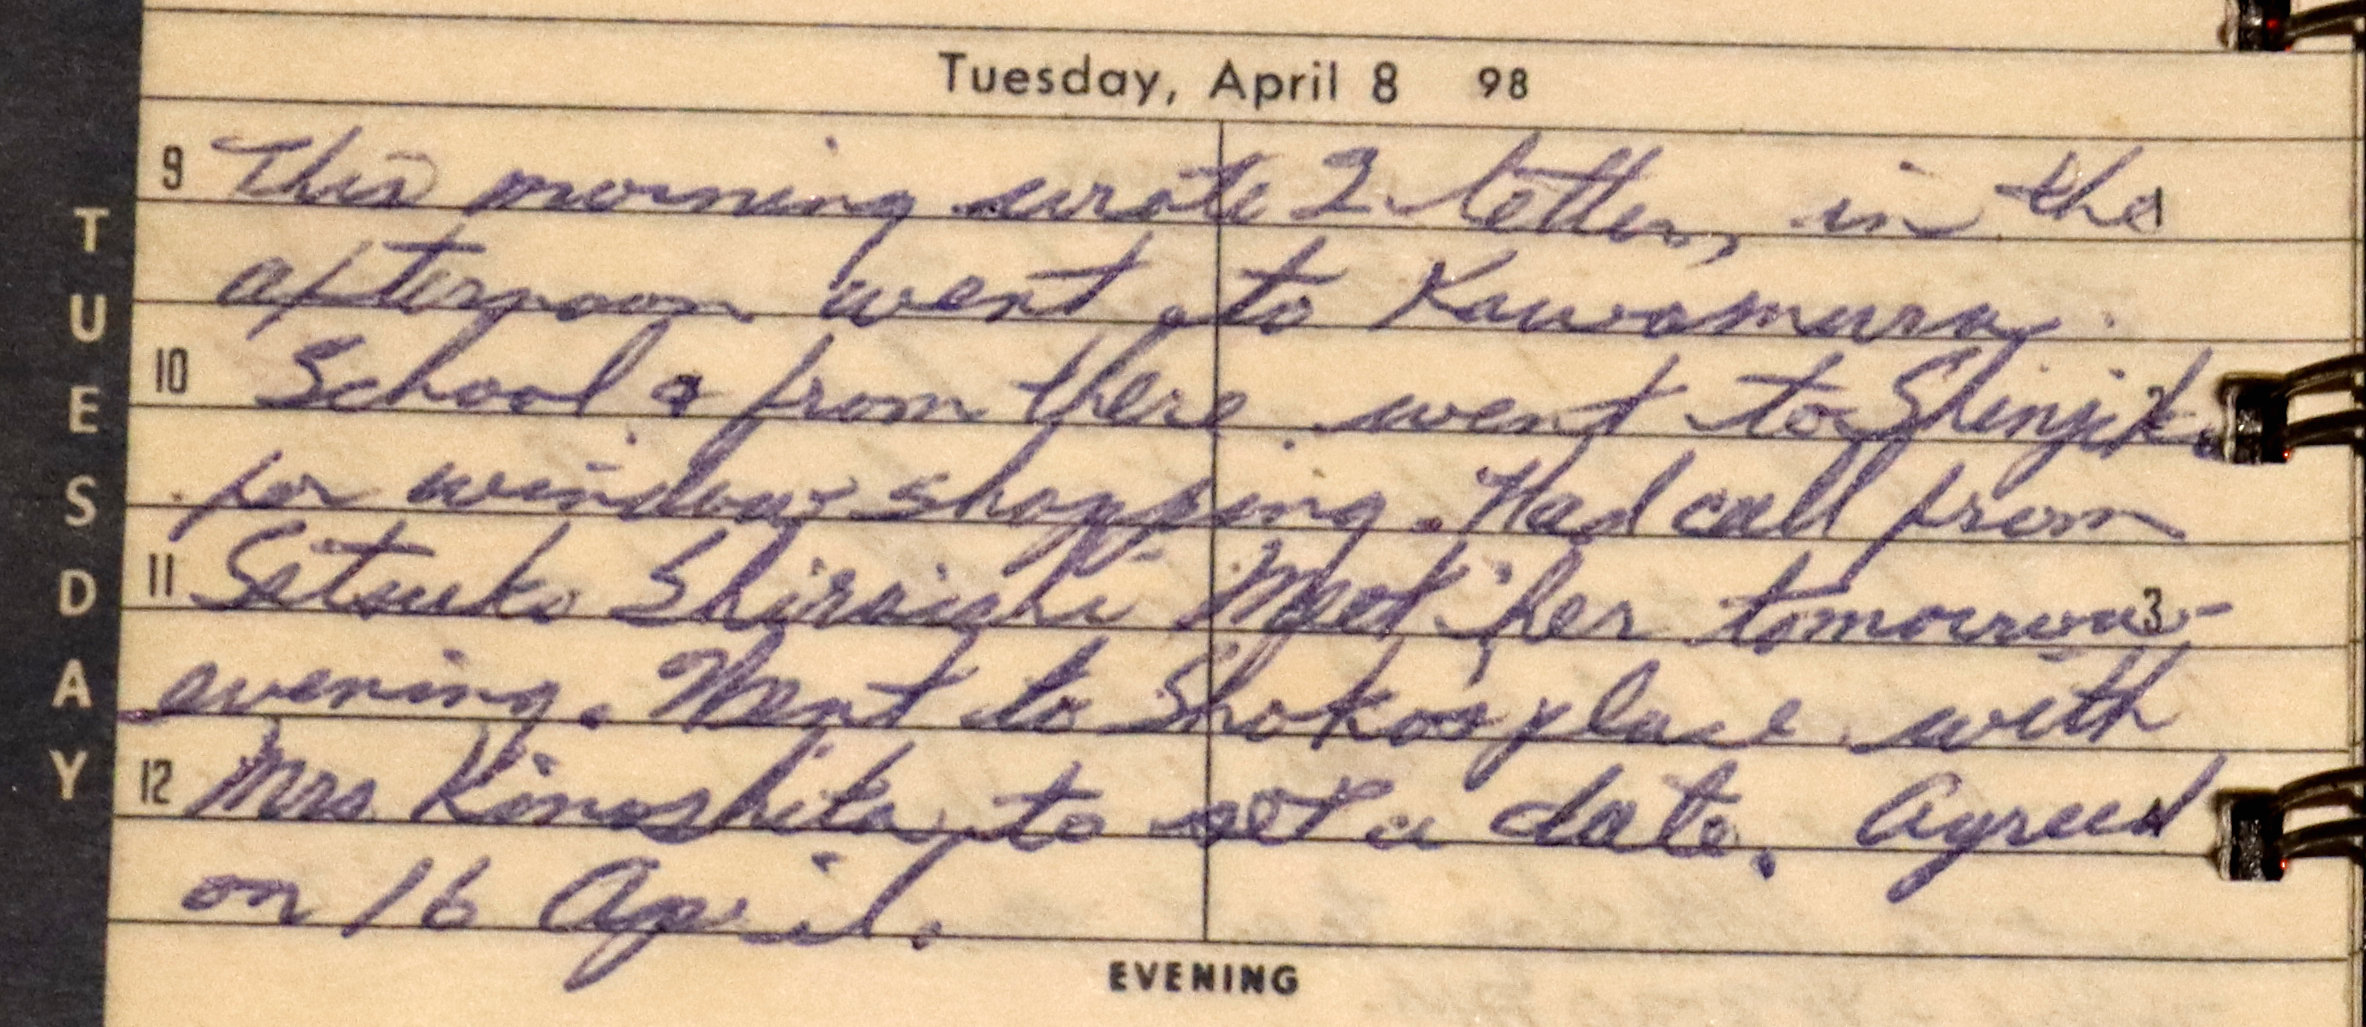 Tuesday, April 8 98
9 This morning wrote 2 letters, in the 1
afternoon went to Kawamura
10 School & from there went to Shinjiku 2
for window shopping. Had call from
11 Setsuko Shiraishi Meet her tomorrow 3
evening. Went to Shokos place with
12 Mrs Kinoshita to set a date. Agreed
on 16 April.
EVENING
TUESDAY